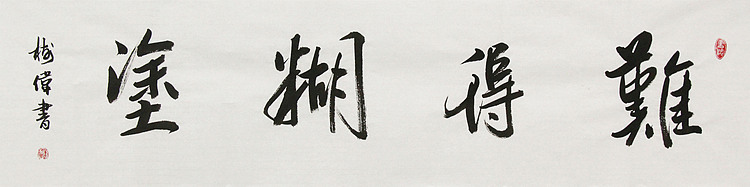 難得糊塗
樹偉書